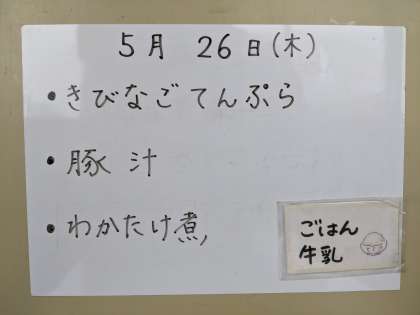 5月 26日(木)
・きびなごてんぷら
・豚汁
・わかたけ煮
ごはん
牛乳